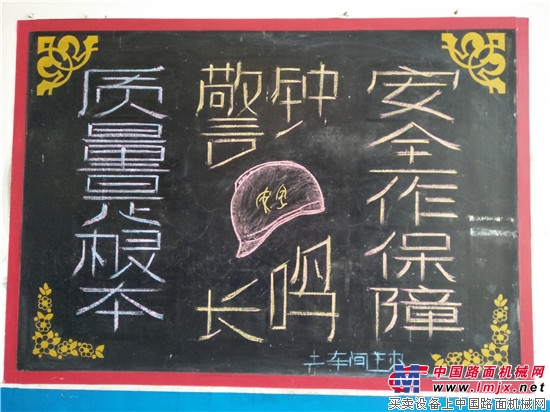 质量是根本
警钟
安全
长鸣
安全作保障
车间主办
中国路面机械网
www.lmjx.net
买卖设备上中国路面机械网